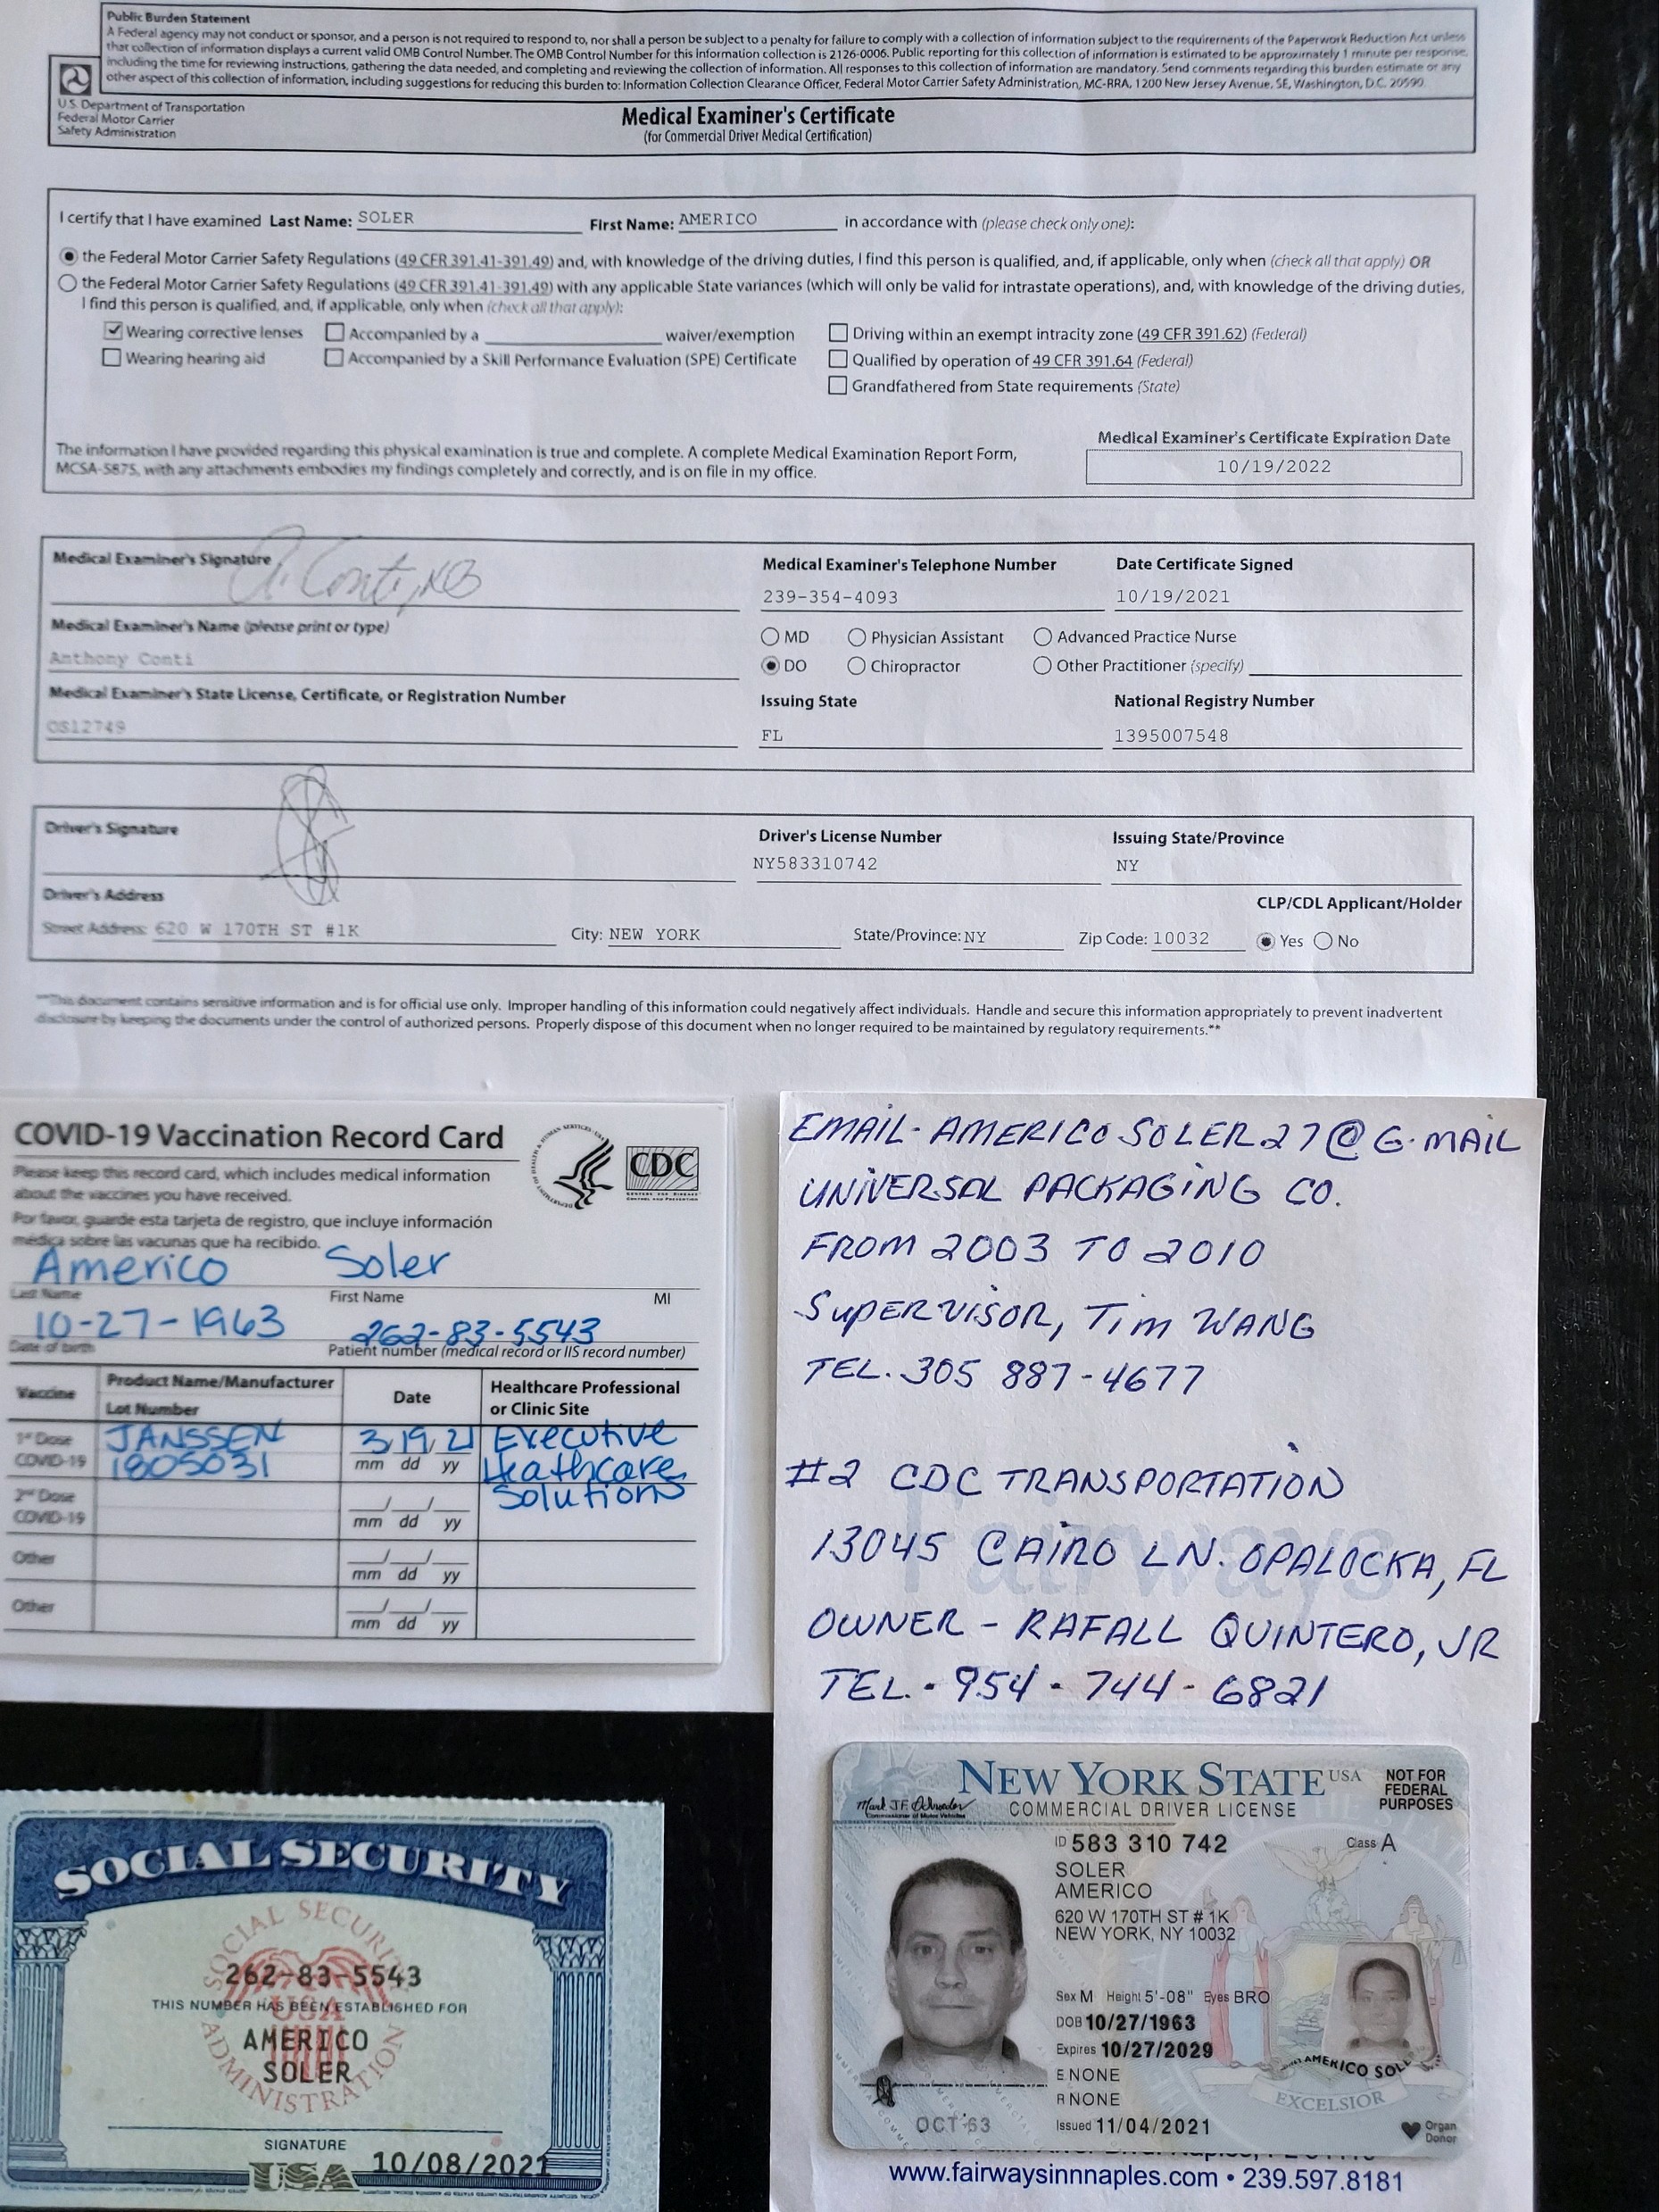 Public Burden Statement
A Federal agency may not conduct or sponsor, and a person is not required to respond to, nor shall a person be subject to a penalty for failure to comply with a collection of information subject to the requirements of the Paperwork Reduction Act unless
that collection of information displays a current valid OMB Control Number. The OMB Control Number for this information collection is 2126-0006. Public reporting for this collection of information is estimated to be approximately 1 minute per response,
including the time for reviewing instructions, gathering the data needed, and completing and reviewing the collection of information. All responses to this collection of information are mandatory. Send comments regarding this burden estimate or any
other aspect of this collection of information, including suggestions for reducing this burden to: Information Collection Clearance Officer, Federal Motor Carrier Safety Administration, MC-RRA, 1200 New Jersey Avenue, SE, Washington, D.C. 20590.
U.S. Department of Transportation
Federal Motor Carrier
Safety Administration
Medical Examiner's Certificate
(for Commercial Driver Medical Certification)
I certify that I have examined Last Name: SOLER First Name: AMERICO in accordance with (please check only one):
the Federal Motor Carrier Safety Regulations (49 CFR 391.41-391.49) and, with knowledge of the driving duties, I find this person is qualified, and, if applicable, only when (check all that apply) OR
the Federal Motor Carrier Safety Regulations (49 CFR 391.41-391.49) with any applicable State variances (which will only be valid for intrastate operations), and, with knowledge of the driving duties,
I find this person is qualified, and, if applicable, only when (check all that apply):
Wearing corrective lenses Accompanied by a waiver/exemption Driving within an exempt intracity zone (49 CFR 391.62) (Federal)
Wearing hearing aid Accompanied by a Skill Performance Evaluation (SPE) Certificate Qualified by operation of 49 CFR 391.64 (Federal)
Grandfathered from State requirements (State)
The information I have provided regarding this physical examination is true and complete. A complete Medical Examination Report Form,
MCSA-5875, with any attachments embodies my findings completely and correctly, and is on file in my office.
Medical Examiner's Certificate Expiration Date
10/19/2022
Medical Examiner's Signature
Medical Examiner's Telephone Number Date Certificate Signed
239-354-4093 10/19/2021
Medical Examiner's Name (please print or type)
Anthony Conti
MD Physician Assistant Advanced Practice Nurse
DO Chiropractor Other Practitioner (specify)
Medical Examiner's State License, Certificate, or Registration Number Issuing State National Registry Number
OS12749 FL 1395007548
Driver's Signature Driver's License Number Issuing State/Province
NY583310742 NY
Driver's Address CLP/CDL Applicant/Holder
Street Address: 620 W 170TH ST #1K City: NEW YORK State/Province: NY Zip Code: 10032 Yes No
**This document contains sensitive information and is for official use only. Improper handling of this information could negatively affect individuals. Handle and secure this information appropriately to prevent inadvertent
disclosure by keeping the documents under the control of authorized persons. Properly dispose of this document when no longer required to be maintained by regulatory requirements.**
COVID-19 Vaccination Record Card
Please keep this record card, which includes medical information
about the vaccines you have received.
Por favor, guarde esta tarjeta de registro, que incluye información
médica sobre las vacunas que ha recibido.
CDC
Americo Soler
Last Name First Name MI
10-27-1963 262-83-5543
Date of birth Patient number (medical record or IIS record number)
Vaccine Product Name/Manufacturer Date Healthcare Professional
Lot Number or Clinic Site
1st Dose COVID-19 JANSSEN 3/19/21 Executive
1805031 mm dd yy Heathcare
Solutions
2nd Dose COVID-19 mm dd yy
Other mm dd yy
Other mm dd yy
EMAIL- AMERICO SOLER27@G.MAIL
UNIVERSAL PACKAGING CO.
FROM 2003 TO 2010
SUPERVISOR, TIM WANG
TEL. 305 887-4677
#2 CDC TRANSPORTATION
13045 CAIRO LN. OPALOCKA, FL
OWNER - RAFALL QUINTERO, JR
TEL. - 954 - 744 - 6821
Fairways
SOCIAL SECURITY
SOCIAL SECURITY ADMINISTRATION
USA
262-83-5543
THIS NUMBER HAS BEEN ESTABLISHED FOR
AMERICO
SOLER
SIGNATURE
USA 10/08/2021
NEW YORK STATE USA
COMMERCIAL DRIVER LICENSE
NOT FOR
FEDERAL
PURPOSES
ID 583 310 742 Class A
SOLER
AMERICO
620 W 170TH ST # 1K
NEW YORK, NY 10032
Sex M Height 5'-08" Eyes BRO
DOB 10/27/1963
Expires 10/27/2029
E NONE
R NONE
Issued 11/04/2021
OCT 63
AMERICO SOL
EXCELSIOR
Organ
Donor
www.fairwaysinnnaples.com • 239.597.8181